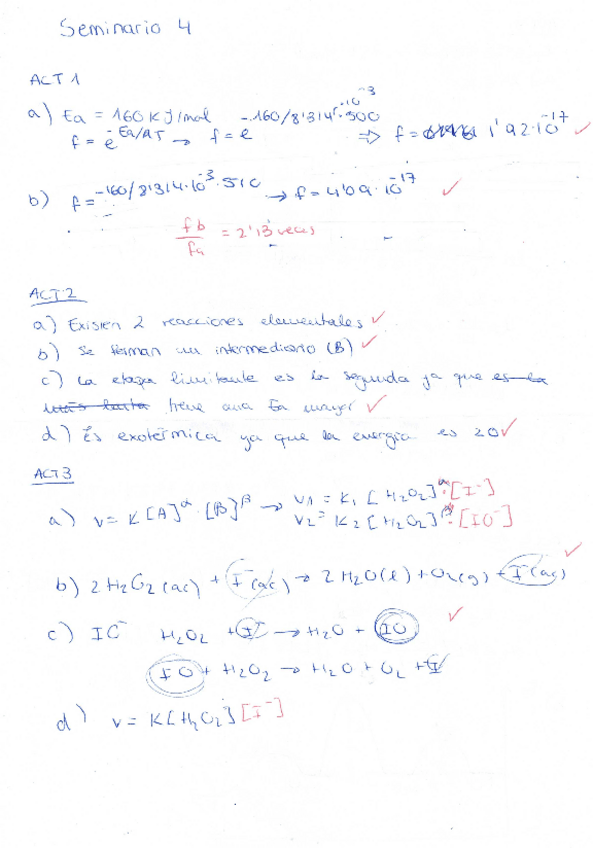 Seminario 4
ACT 1
a) Ea = 160 KJ/mol
f = e^-Ea/RT → f = e^-160/8'314·10^-3·500 ⇒ f = 1'92·10^-17 ✓
b) f = e^-160/8'314·10^-3·510 → f = 4'09·10^-17 ✓
fb/fa = 2'13 veces
ACT 2
a) Existen 2 reacciones elementales ✓
b) Se forman un intermediario (B) ✓
c) La etapa limitante es la segunda ya que es la
más lenta tiene una Ea mayor ✓
d) És exotérmica ya que la energía es <0 ✓
ACT 3
a) v = K[A]^α · [B]^β → v1 = K1 [H2O2]^α · [I-]
v2 = K2 [H2O2]^β · [IO-]
b) 2 H2O2 (ac) + I-(ac) → 2 H2O (l) + O2 (g) + I-(ac) ✓
c) IO- H2O2 + I → H2O + IO ✓
IO + H2O2 → H2O + O2 + I
d) v = K[H2O2] [I-]